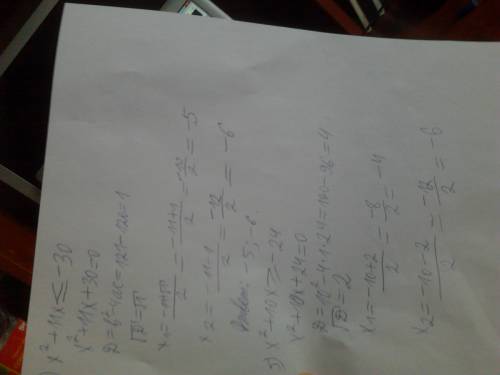 ) x²+11x ≤ -30
x²+11x+30=0
D=b²-4ac=121-120=1
x₁= -11+1/2 = -10/2 = -5
x₂ = -11-1/2 = -12/2 = -6
Ответ: -5; -6
x²+10x ≥ -24
x²+10x+24=0
D=10²-4·1·24=100-96=4
√D=2
x₁= -10+2/2 = -8/2 = -4
x₂= -10-2/2 = -12/2 = -6